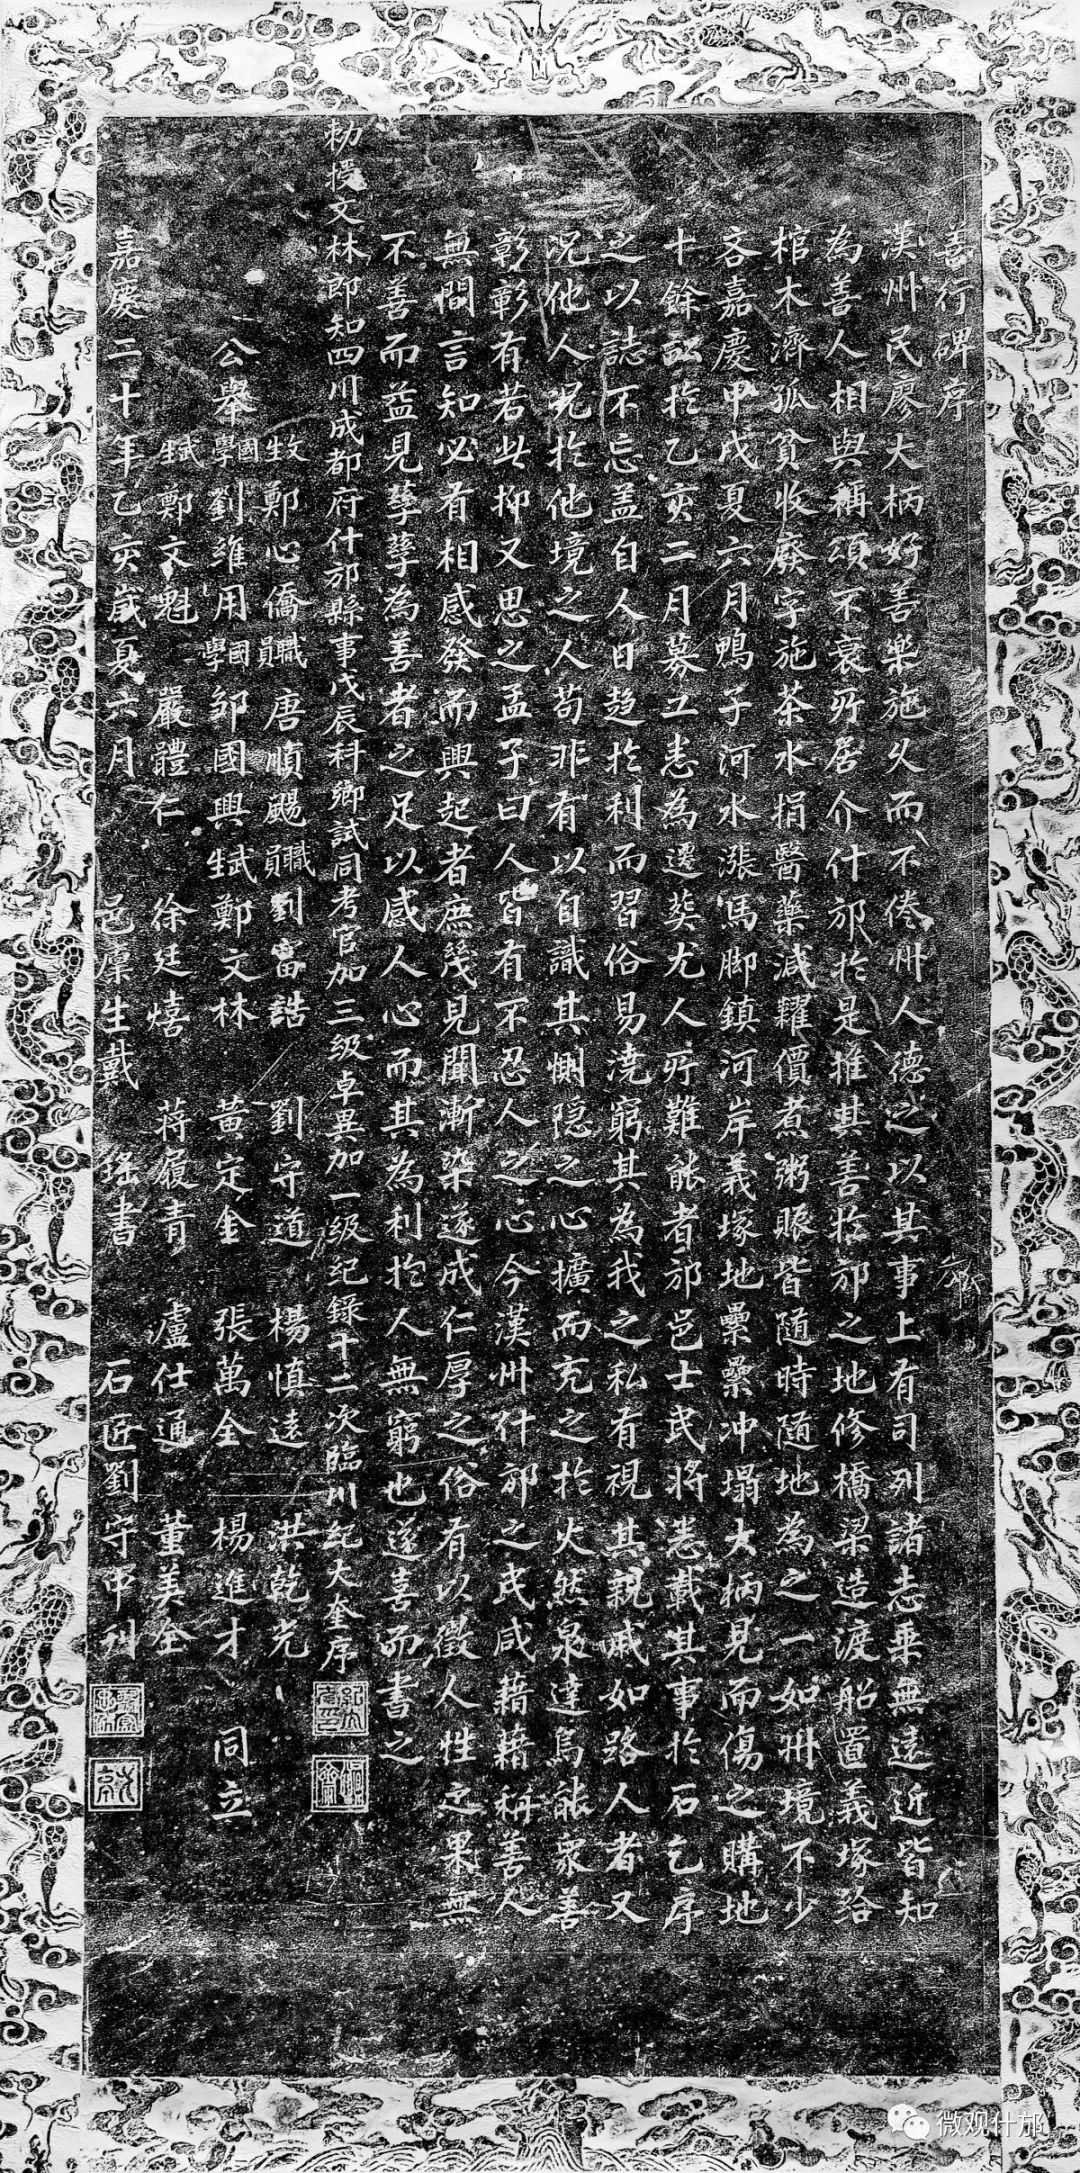 善行碑序
漢州民廖大柄好善樂施久而不倦州人德之以其事上有司列諸志乘無遠近皆知
為善人相與稱頌不衰所居介什邡於是推其善於邡之地修橋梁造渡船置義塚給
棺木濟孤貧收廢字施茶水捐醫藥減糶價煮粥賑皆随時随地為之一如州境不少
吝嘉慶甲戌夏六月鴨子河水漲馬脚鎮河岸義塚地纍纍冲塌大柄見而傷之購地
十餘畝於乙亥二月募工悉為遷葬尤人所難能者邡邑士民將悉載其事於石乞序
之以誌不忘盖自人日趨於利而習俗易澆窮其為我之私有視其親戚如路人者又
况他人况於他境之人苟非有以自識其惻隠之心擴而充之於火然泉達烏能衆善
彰彰有若此抑又思之孟子曰人皆有不忍人之心今漢州什邡之民咸藉藉稱善人
無間言知必有相感發而興起者庶幾見聞漸染遂成仁厚之俗有以徵人性之果無
不善而益見孳孳為善者之足以感人心而其為利於人無窮也遂喜而書之
勅授文林郎知四川成都府什邡縣事戊辰科鄉試同考官加三級卓異加一級紀錄十二次臨川紀大奎序
生 鄭心僑 職員 唐順颺 職員 劉富誥 劉守道 楊慎遠 洪乾光
公舉 國學 劉維用 國學 鄒國興 武生 鄭文林 黄定金 張萬全 楊進才 同立
武生 鄭文魁 嚴體仁 徐廷熺 蔣履青 盧仕通 董美全
嘉慶二十年乙亥歲夏六月 邑廪生戴瑤書 石匠劉守中刊
微观什邡